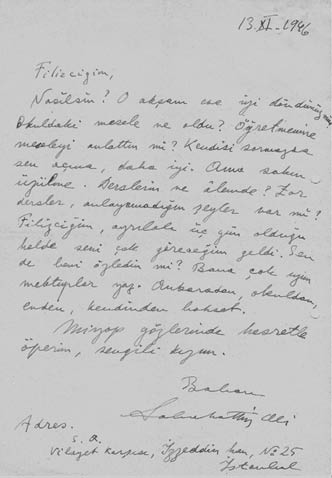 13.XI.1946
Filizciğim,
Nasılsın? O akşam eve iyi döndünüz mü?
Okuldaki mesele ne oldu? Öğretmenine
meseleyi anlattın mı? Kendisi sormazsa
sen açma, daha iyi. Ama sakın
üzülme. Derslerin ne âlemde? Zor
dersler, anlayamadığın şeyler var mı?
Filizciğim, ayrılalı üç gün olduğu
halde seni çok göreceğim geldi. Sen
de beni özledin mi? Bana çok uzun
mektuplar yaz. Ankaradan, okuldan,
evden, kendinden bahset.
Miyop gözlerinden hasretle
öperim, sevgili kızım.
Baban
Sabahattin Ali
Adres.
S. A.
Vilâyet karşısı, İzzeddin han, No 25
İstanbul